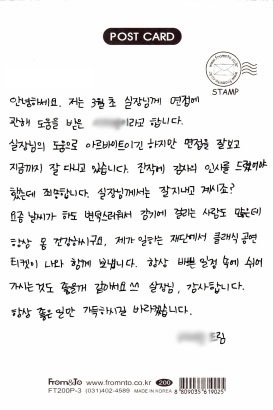 POST CARD
STAMP
안녕하세요. 저는 3월 초 실장님께 면접에
관해 도움을 받은 이라고 합니다.
실장님의 도움으로 아르바이트이긴 하지만 면접을 잘보고
지금까지 잘 다니고 있습니다. 진작에 감사의 인사를 드렸어야
했는데 죄송합니다. 실장님께서는 잘지내고 계시죠?
요즘 날씨가 하도 변덕스러워서 감기에 걸리는 사람도 많은데
항상 몸 건강하시구요, 제가 일하는 재단에서 클래식 공연
티켓이 나와 함께 보냅니다. 항상 바쁜 일정 속에 쉬어
가시는것도 좋을꺼 같아서요^^ 실장님, 감사합니다.
항상 좋은일만 가득하시길 바라겠습니다.
드림
From&To www.fromnto.co.kr 200
FT200P-3 (031)402-4589 MADE IN KOREA 8 809035 619025